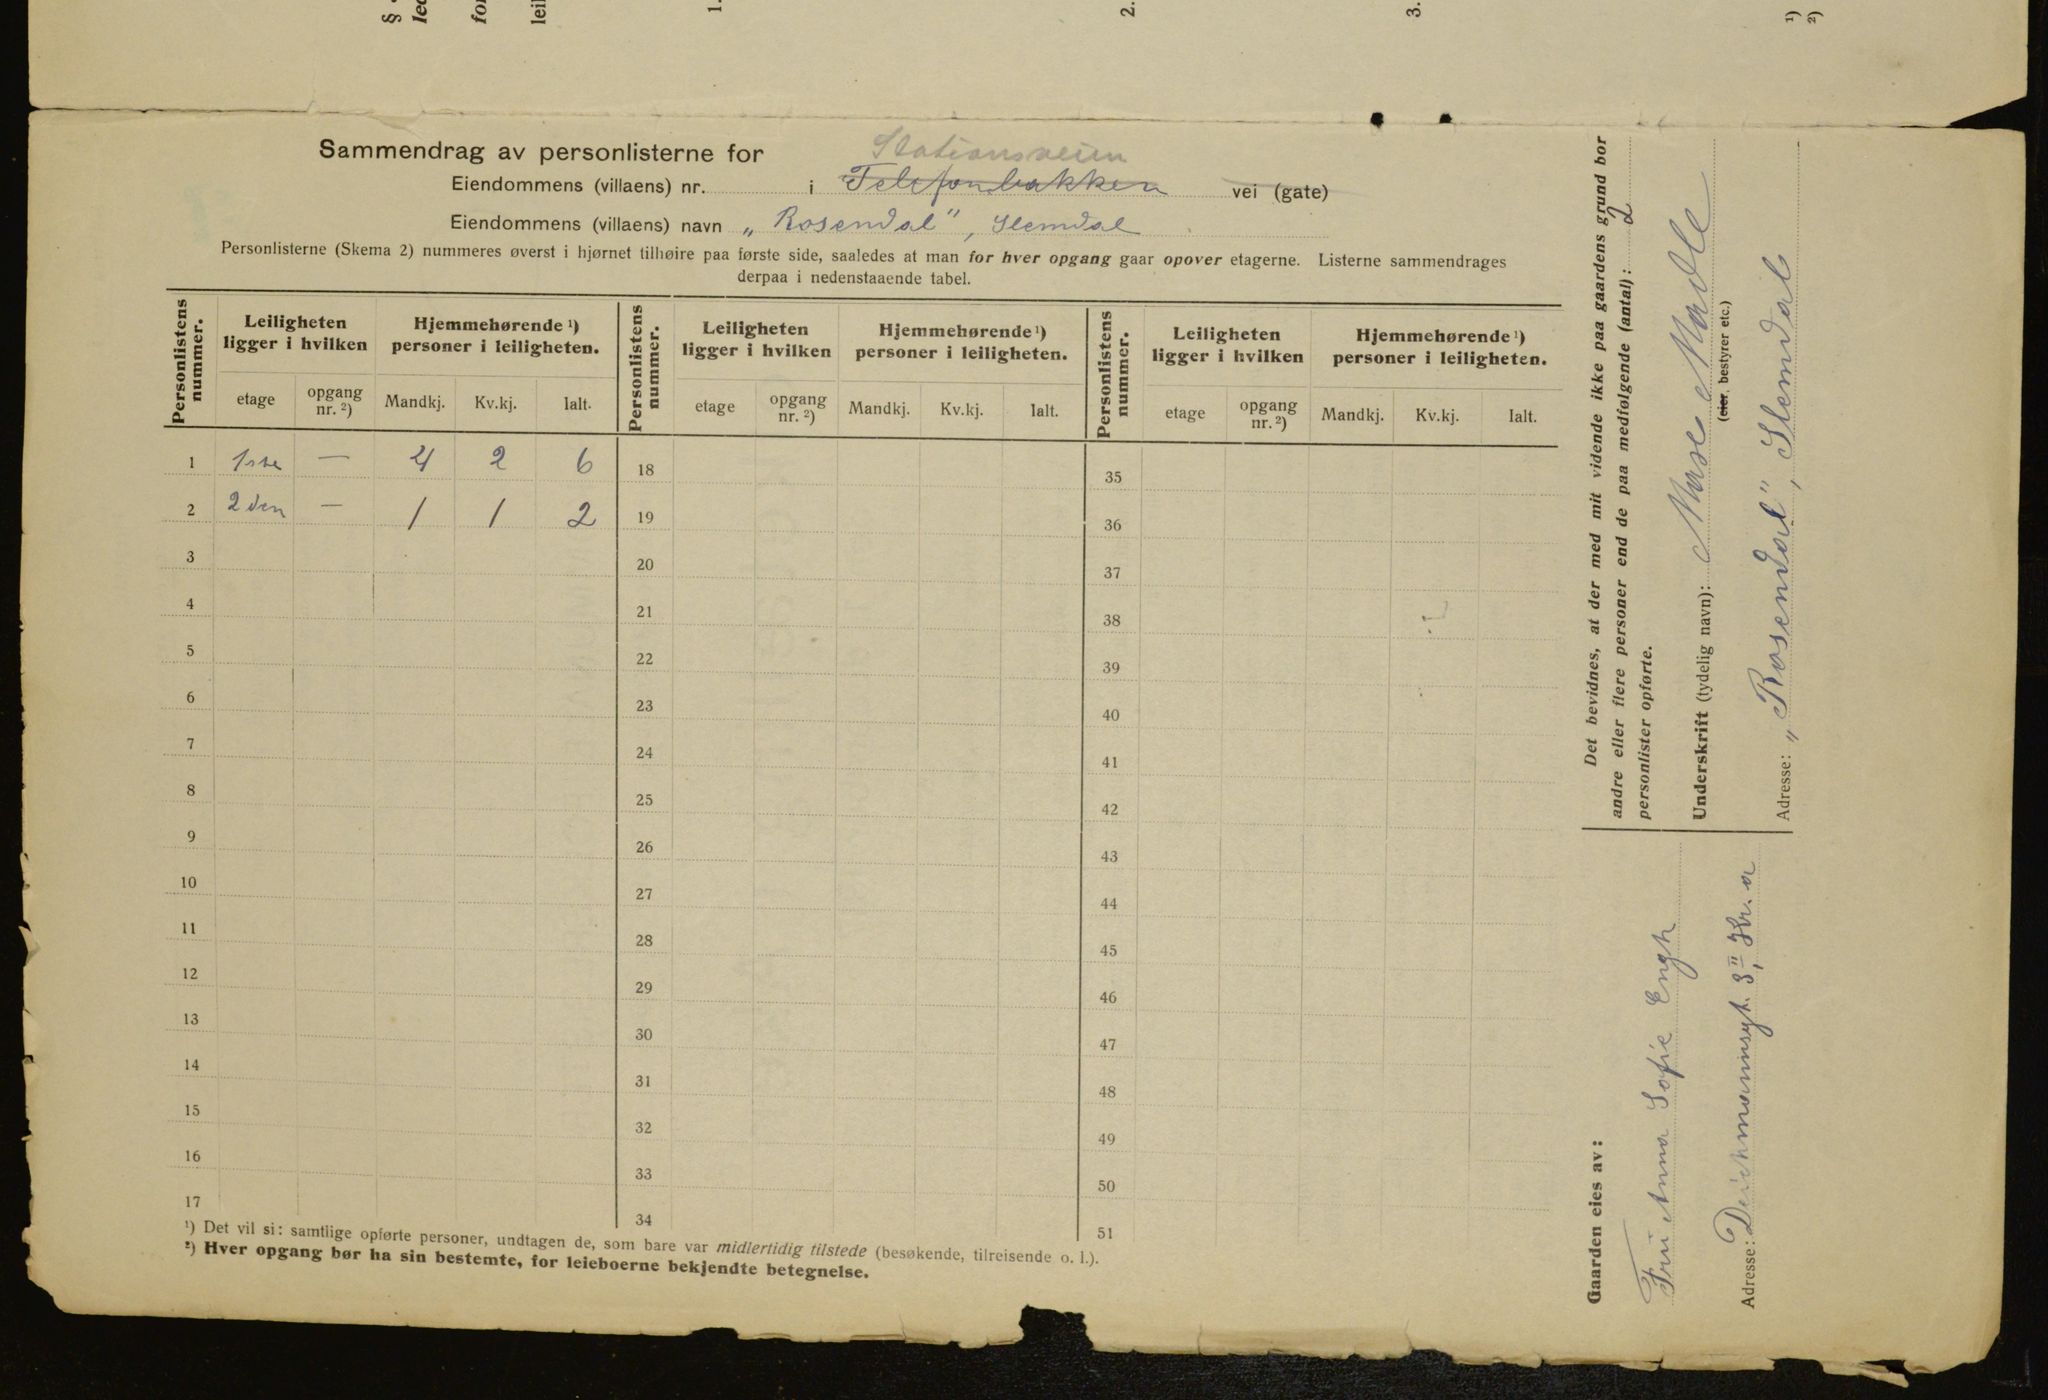 §
led
for
leil
1.
2.
3.
¹)
²)
Sammendrag av personlisterne for
Stationsveien
Eiendommens (villaens) nr. i Telefonbakken vei (gate)
Eiendommens (villaens) navn „Rosendal", Slemdal
Personlisterne (Skema 2) nummeres øverst i hjørnet tilhøire paa første side, saaledes at man for hver opgang gaar opover etagerne. Listerne sammendrages
derpaa i nedenstaaende tabel.
Personlistens nummer. Leiligheten ligger i hvilken Hjemmehørende ¹) personer i leiligheten. Personlistens nummer. Leiligheten ligger i hvilken Hjemmehørende ¹) personer i leiligheten. Personlistens nummer. Leiligheten ligger i hvilken Hjemmehørende ¹) personer i leiligheten.
etage opgang nr. ²) Mandkj. Kv.kj. Ialt. etage opgang nr. ²) Mandkj. Kv.kj. Ialt. etage opgang nr. ²) Mandkj. Kv.kj. Ialt.
1 1ste — 4 2 6 18 35
2 2den — 1 1 2 19 36
3 20 37
4 21 38
5 22 39
6 23 40
7 24 41
8 25 42
9 26 43
10 27 44
11 28 45
12 29 46
13 30 47
14 31 48
15 32 49
16 33 50
17 34 51
¹) Det vil si: samtlige opførte personer, undtagen de, som bare var midlertidig tilstede (besøkende, tilreisende o. l.).
²) Hver opgang bør ha sin bestemte, for leieboerne bekjendte betegnelse.
Det bevidnes, at der med mit vidende ikke paa gaardens grund bor
andre eller flere personer end de paa medfølgende (antal): 2
personlister opførte.
Underskrift (tydelig navn):
(eier, bestyrer etc.)
Adresse: „Rosendal", Slemdal
Gaarden eies av:
Fru Anna Sofie Engh
Adresse: Deichmannsgt. 3 II, Kr.a